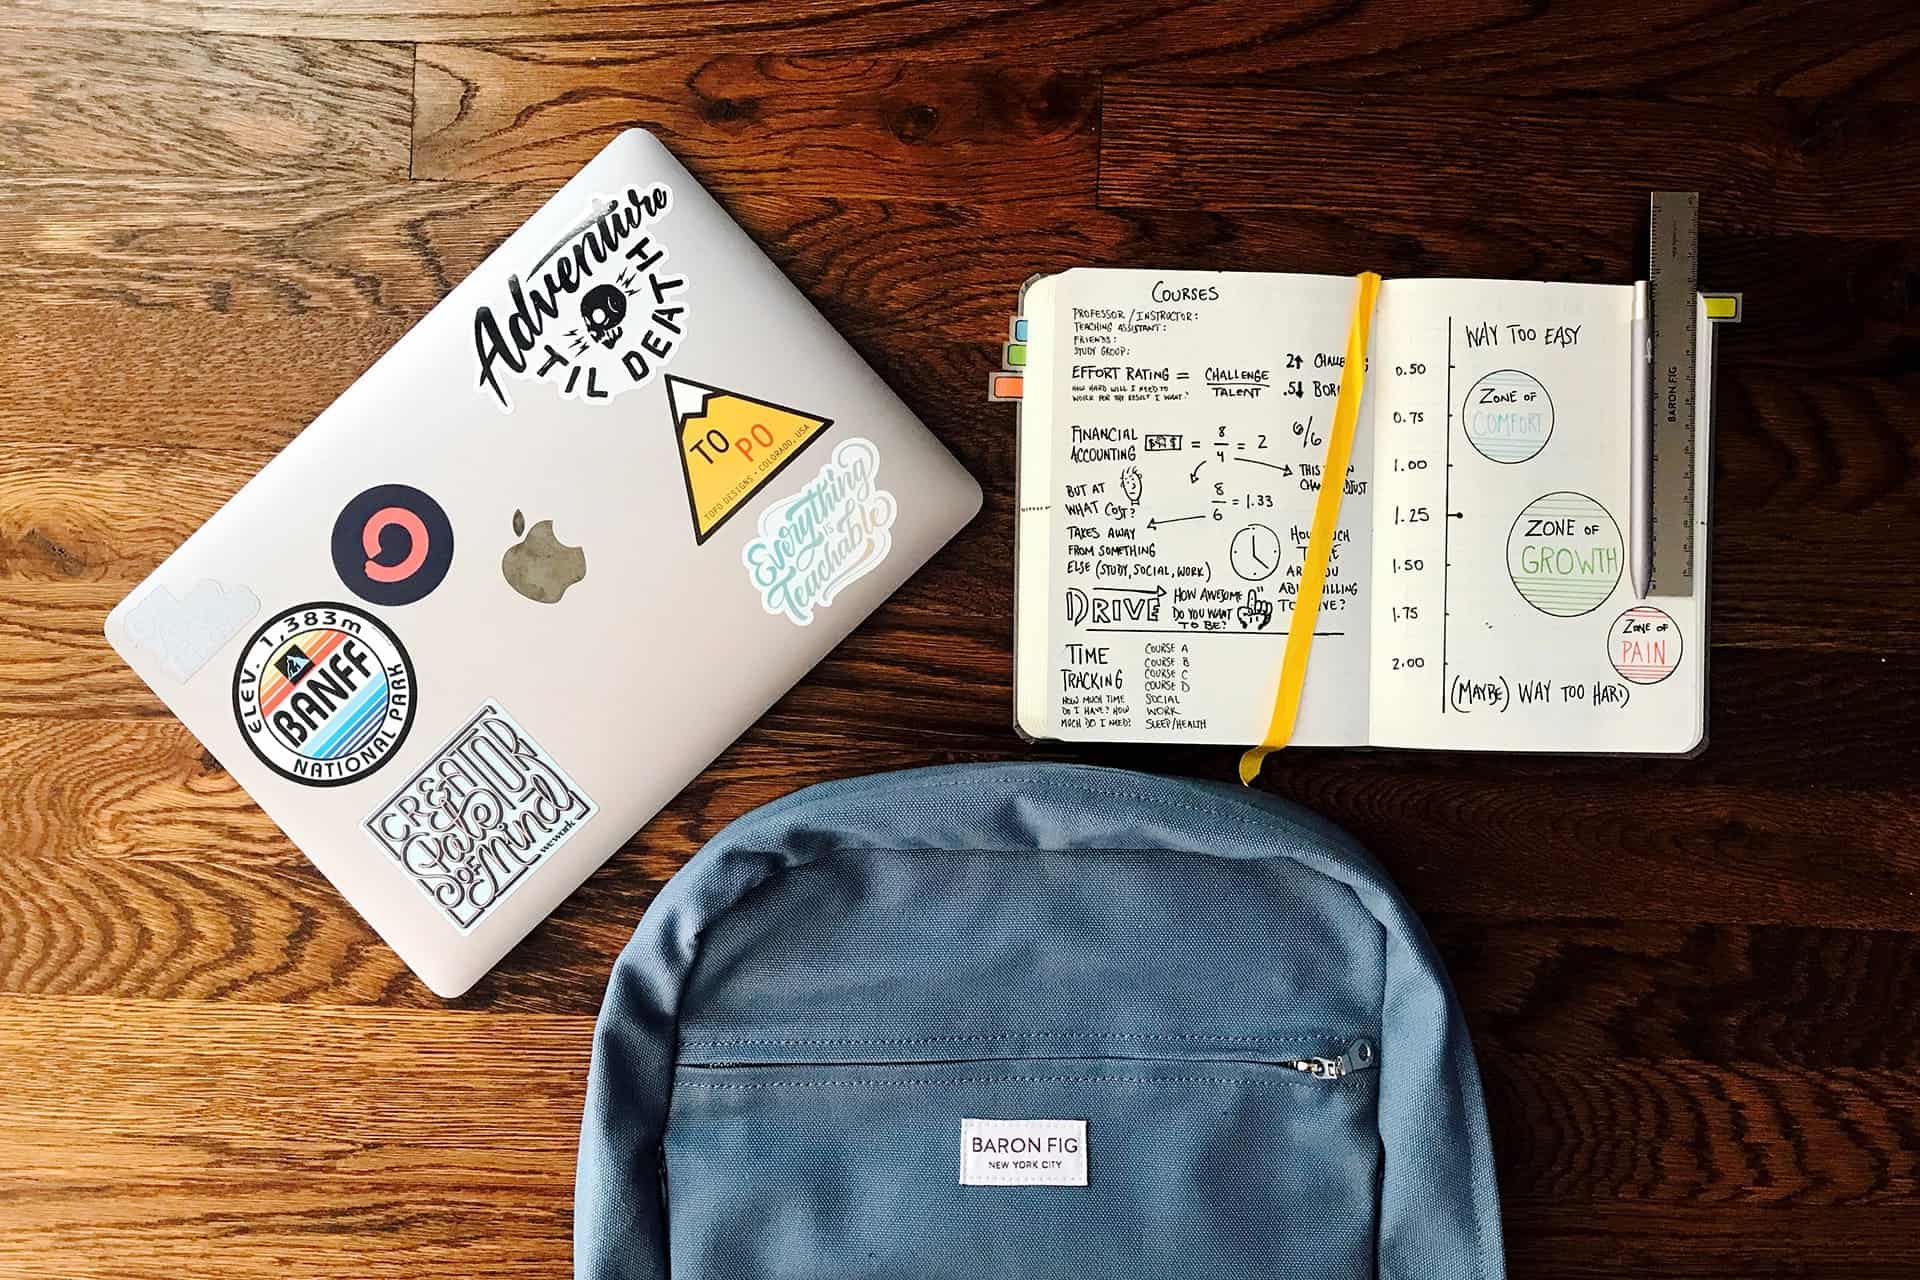 Adventure
TIL DEATH
TO PO
TOPO DESIGNS • COLORADO, USA
Everything
IS
Teachable
ELEV. 1,383m
BANFF
NATIONAL PARK
CREATOR
State
OF Mind
wework
COURSES
PROFESSOR/INSTRUCTOR:
TEACHING ASSISTANT:
FRIENDS:
STUDY GROUP:
EFFORT RATING = CHALLENGE
TALENT
HOW HARD WILL I NEED TO
WORK FOR THE RESULT I WANT?
2↑
.5↓
FINANCIAL
ACCOUNTING
$$$ = 8
4 = 2
6/6
THIS
BUT AT
WHAT COST?
8
6 = 1.33
TAKES AWAY
FROM SOMETHING
ELSE (STUDY, SOCIAL, WORK)
HOW
DRIVE
HOW AWESOME
DO YOU WANT
TO BE?
TIME
TRACKING
HOW MUCH TIME
DO I HAVE? HOW
MUCH DO I NEED?
COURSE A
COURSE B
COURSE C
COURSE D
SOCIAL
WORK
SLEEP/HEALTH
WAY TOO EASY
0.50
0.75
1.00
1.25
1.50
1.75
2.00
ZONE OF
COMFORT
ZONE OF
GROWTH
ZONE OF
PAIN
(MAYBE) WAY TOO HARD
BARON FIG
BARON FIG
NEW YORK CITY